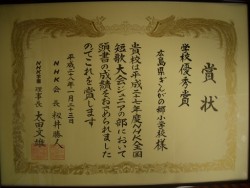 賞状
学校優秀賞
広島県ぎんがの郷小学校様
貴校は平成二十七年度NHK全国
短歌大会ジュニアの部において
頭書の成績をおさめられました
のでこれを賞します
平成二十八年一月二十三日
NHK会長 籾井勝人
NHK学園 理事長 太田文雄